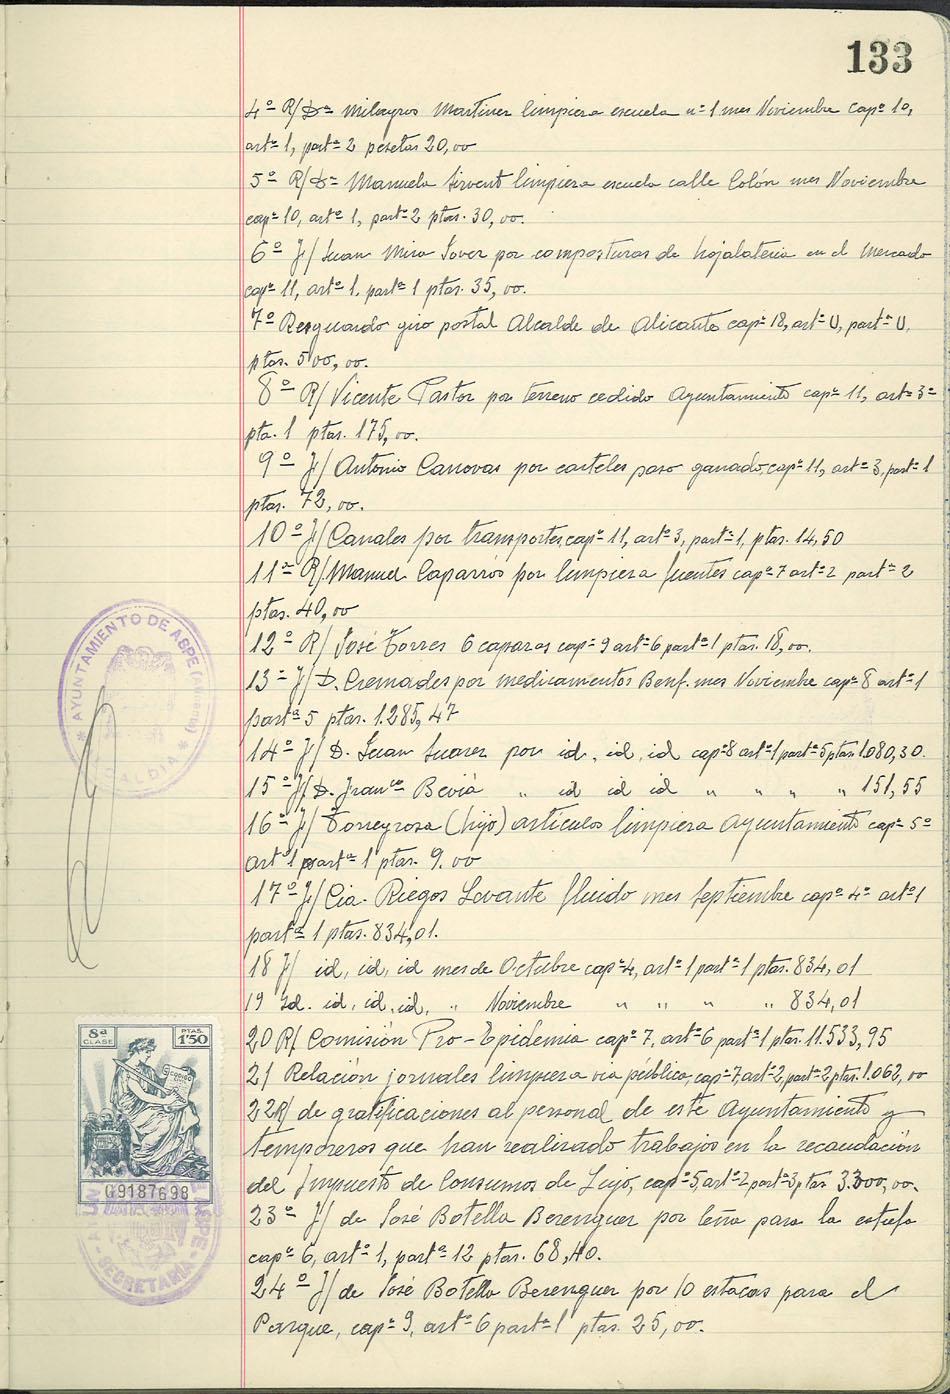 133
4º R/ Dª Milagros Martinez limpieza escuela nº 1 mes Noviembre capº 10,
artº 1, partª 2 pesetas 20,00
5º R/ Dª Manuela Sirvent limpieza escuela calle Colón mes Noviembre
capº 10, artº 1, partª 2 ptas. 30,00.
6º J/ Juan Mira Jover por composturas de hojalateria en el Mercado
capº 11, artº 1. partª 1 ptas. 35,00.
7º Resguardo giro postal Alcalde de Alicante capº 18, artº U, partª U,
ptas. 500,00.
8º R/ Vicente Pastor por terreno cedido Ayuntamiento capº 11, artº 3º
pta. 1 ptas. 175,00.
9º J/ Antonio Canovas por carteles paso ganado, capº 11, artº 3, partª 1
ptas. 72,00.
10º J/ Canales por transportes, capº 11, artº 3, partª 1, ptas. 14,50
11º R/ Manuel Caparrós por limpieza fuentes capº 7 artº 2 partª 2
ptas. 40,00
12º R/ José Torres 6 caparas capº 9 artº 6 partª 1 ptas. 18,00.
13º J/ D. Cremades por medicamentos Benf. mes Noviembre capº 8 artº 1
partª 5 ptas. 1.285,47
14º J/ D. Juan Suarez por id, id, id capº 8 artº 1 partª 5 ptas. 1.080,30.
15º J/ D. Franco Beviá " id id id " " " " 151,55
16º J/ Torregrosa (hijo) articulos limpieza Ayuntamiento capº 5º
artº 1 partª 1 ptas. 9.00
17º J/ Cia. Riegos Levante fluido mes Septiembre capº 4º artº 1
partª 1 ptas. 834,01.
18 J/ id, id, id mes de Octubre capº 4, artº 1 partª 1 ptas. 834,01
19 Id. id, id, id, " Noviembre " " " " 834,01
20 R/ Comisión Pro-Epidemia capº 7, artº 6 partª 1 ptas. 11.533,95
21 Relación jornales limpieza via pública, capº 7, artº 2, partª 2 ptas. 1.062,00
22 R/ de gratificaciones al personal de este Ayuntamiento y
temporeros que han realizado trabajos en la recaudación
del Impuesto de Consumos de Lujo, capº 5, artº 2, partª 3, ptas 3.000,00.
23º J/ de José Botella Berenguer por leña para la estufa
capº 6, artº 1, partª 12 ptas. 68,40.
24º J/ de José Botella Berenguer por 10 estacas para el
Parque, capº 9, artº 6 partª 1 ptas. 25,00.
AYUNTAMIENTO DE ASPE (Alicante)
ALCALDIA
8ª CLASE
PTAS. 1'50
CODIGO
G9187698
SECRETARIA